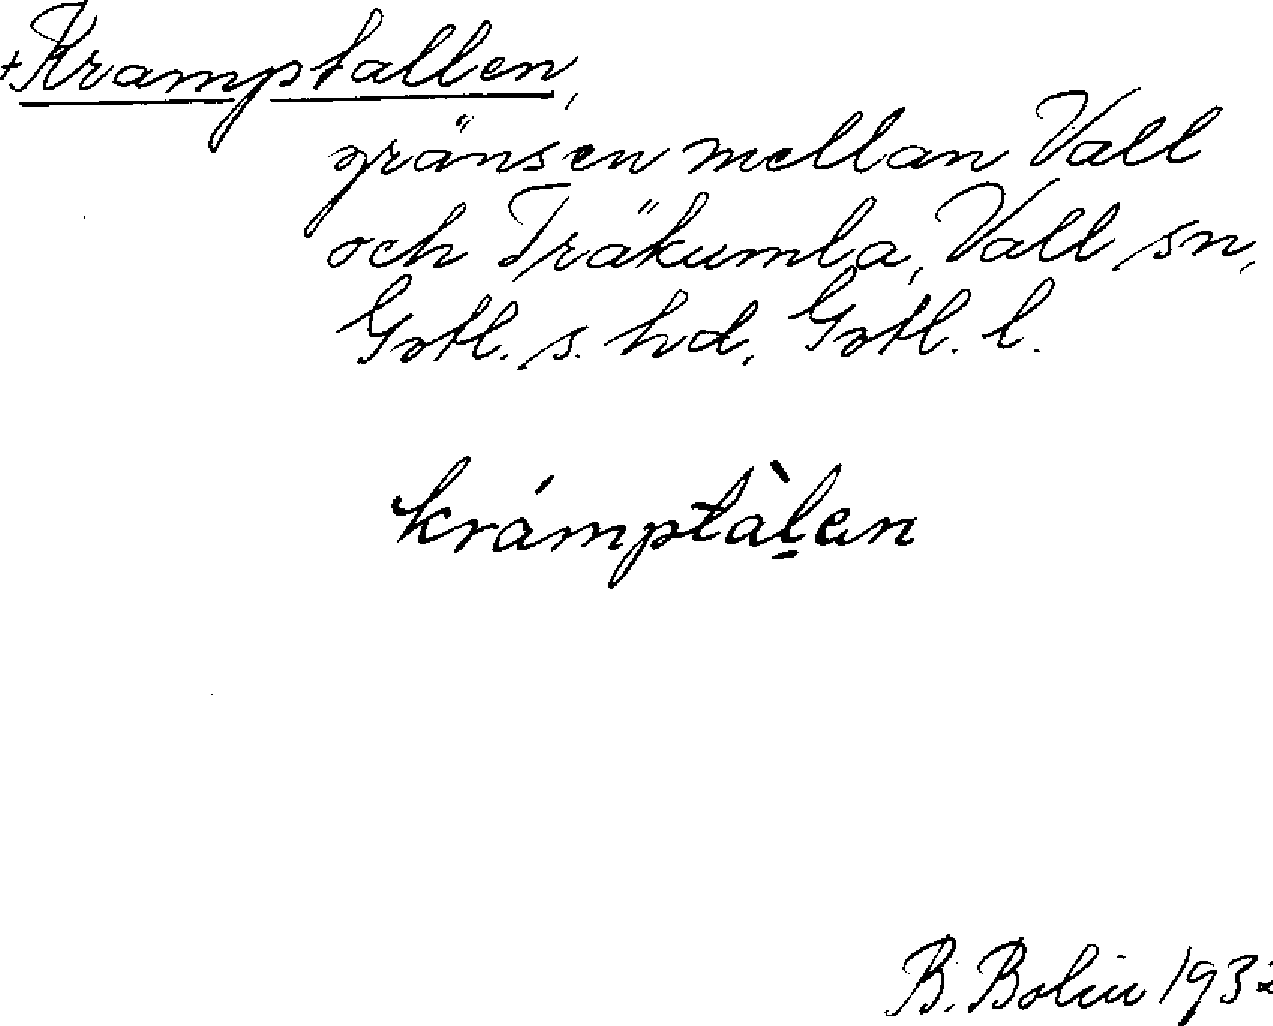 +Kramptallen,
gränsen mellan Vall
och Träkumla, Vall sn,
Gotl. s. hd, Gotl. l.
krámptàl̠en
B. Bolin 1932